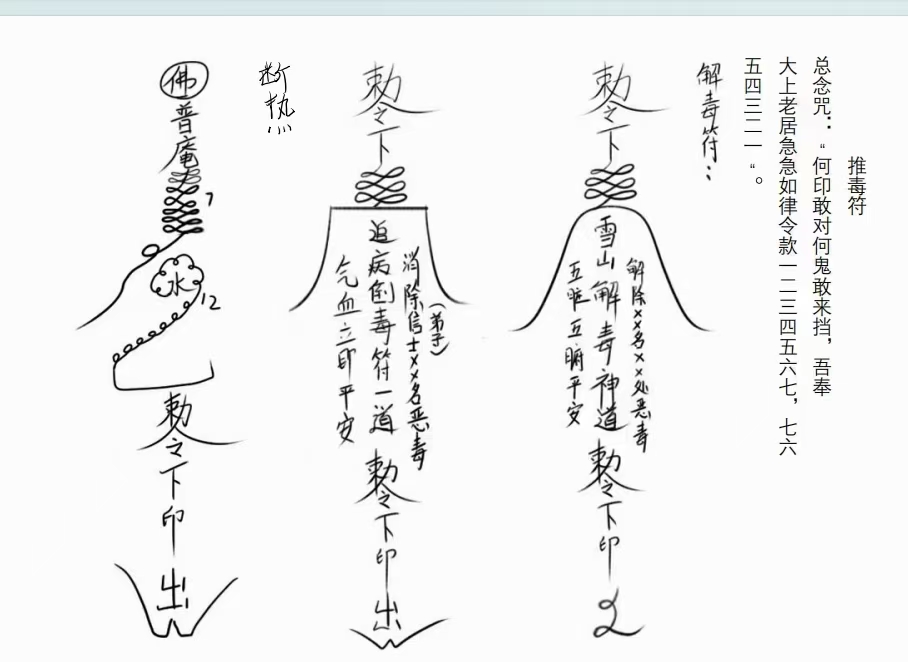 推毒符
总念咒：“何印敢对何鬼敢来挡，吾奉
大上老居急急如律令款一二三四五六七，七六
五四三二一“。
解毒符：
敕令下
雪山解毒神道
解除××名××处恶毒
五脏五腑平安
敕令下印
敕令下
追病倒毒符一道
消除信士××名恶毒
（弟子）
气血立即平安
敕令下印
出
断热
佛
普庵
7
水
12
敕令下印
出